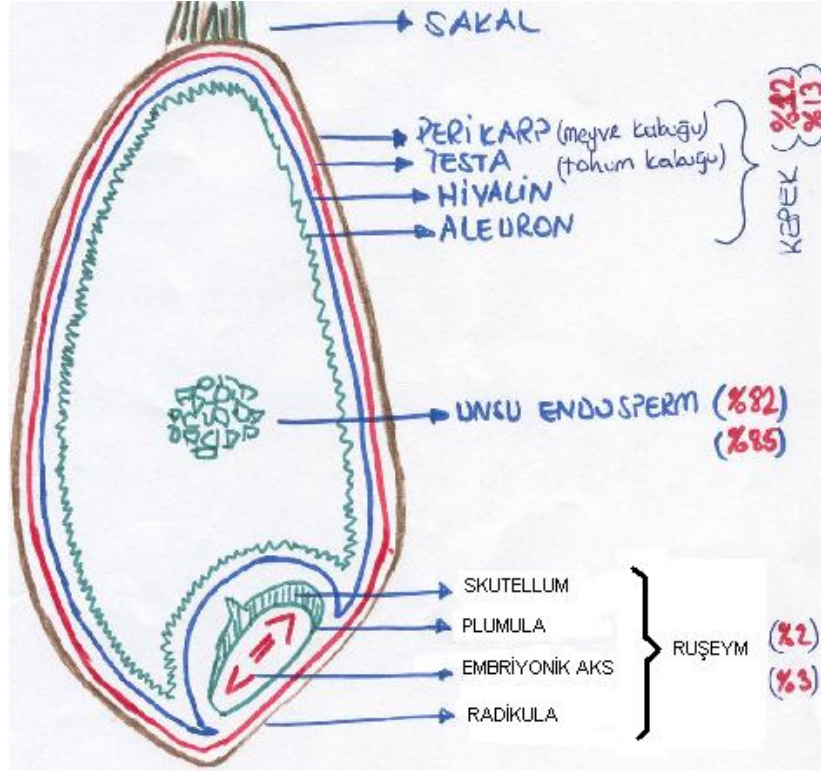 SAKAL
PERİKARP (meyve kabuğu)
TESTA (tohum kabuğu)
HİYALİN
ALEURON
KEPEK {%12}
{%13}
UNSU ENDOSPERM (%82)
(%85)
SKUTELLUM
PLUMULA
EMBRİYONİK AKS
RADİKULA
RUŞEYM (%2)
(%3)